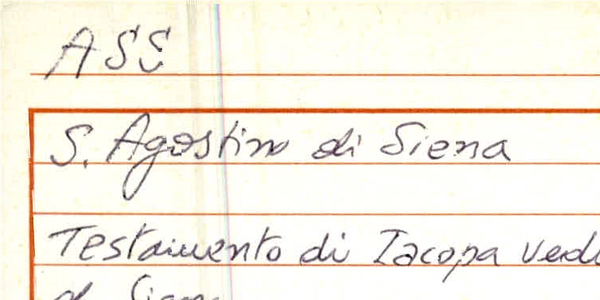 ASS
S. Agostino di Siena
Testamento di Iacopa
di Siena